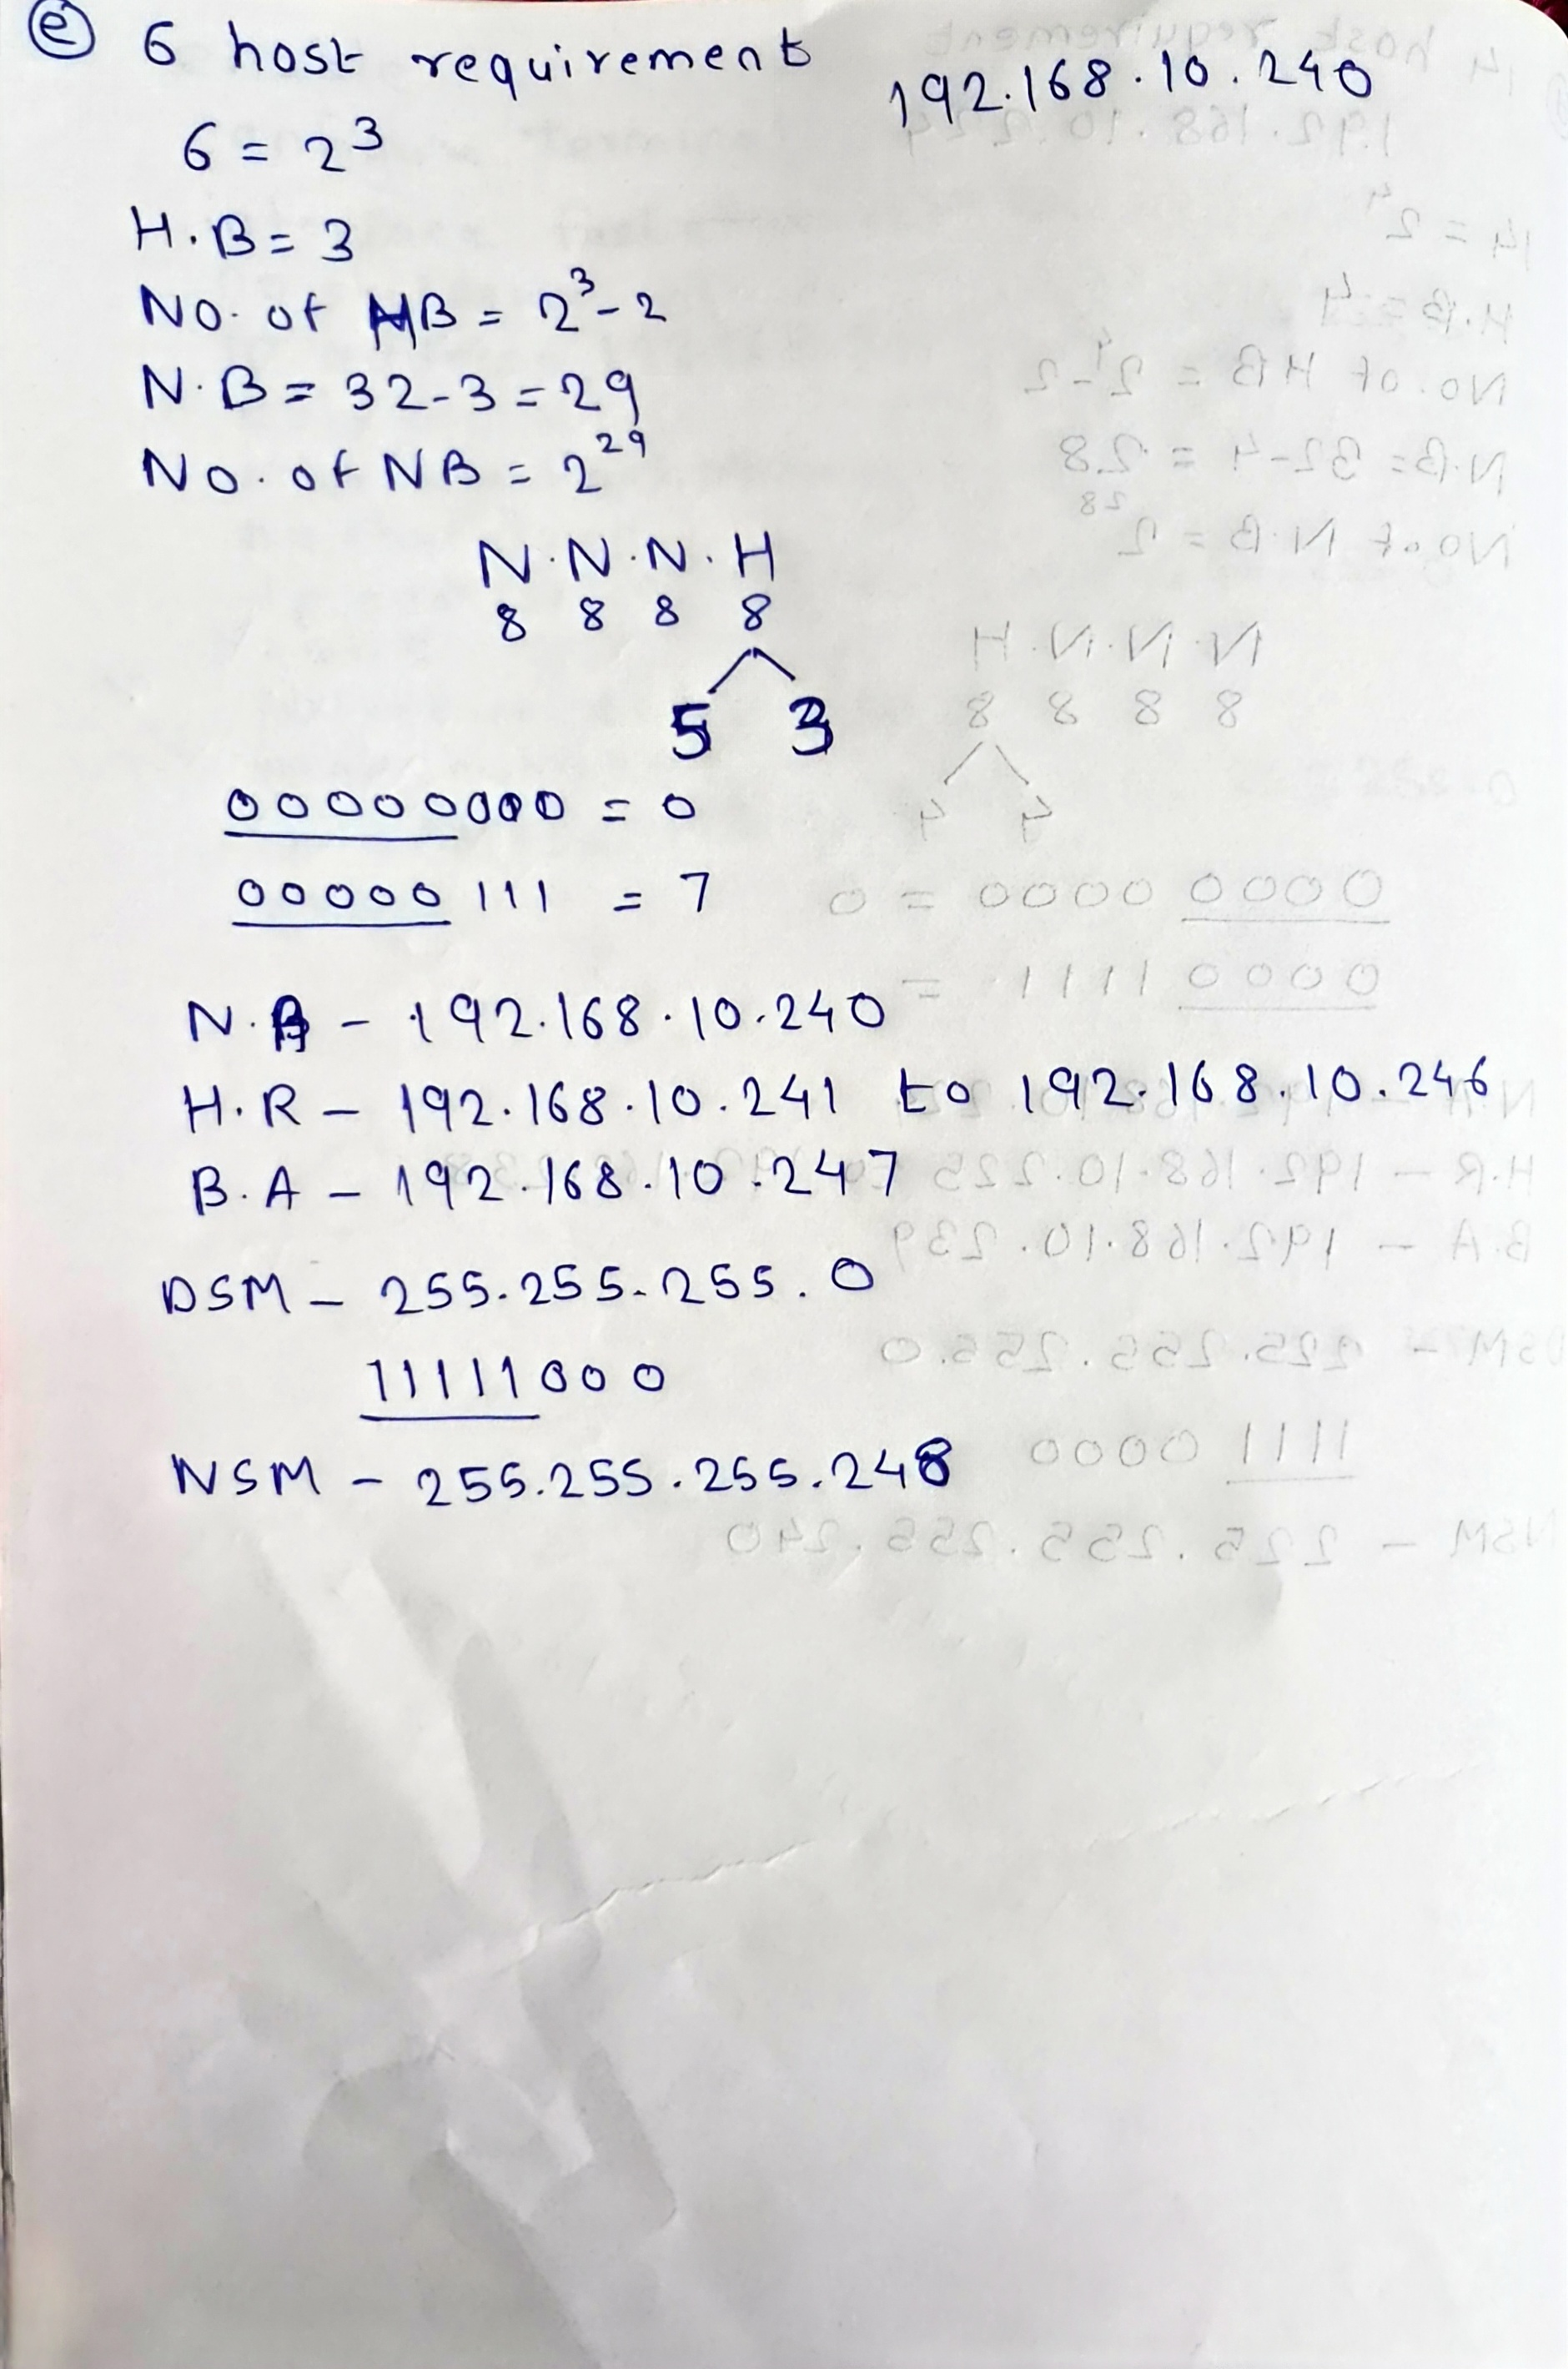 ⓔ 6 host requirement 192.168.10.240
6 = 2³
H.B = 3
No. of HB = 2³-2
N.B = 32-3 = 29
No. of NB = 2²⁹
N.N.N.H
8 8 8 8
5 3
00000000 = 0
00000111 = 7
N.A - 192.168.10.240
H.R - 192.168.10.241 to 192.168.10.246
B.A - 192.168.10.247
DSM - 255.255.255.0
11111000
NSM - 255.255.255.248